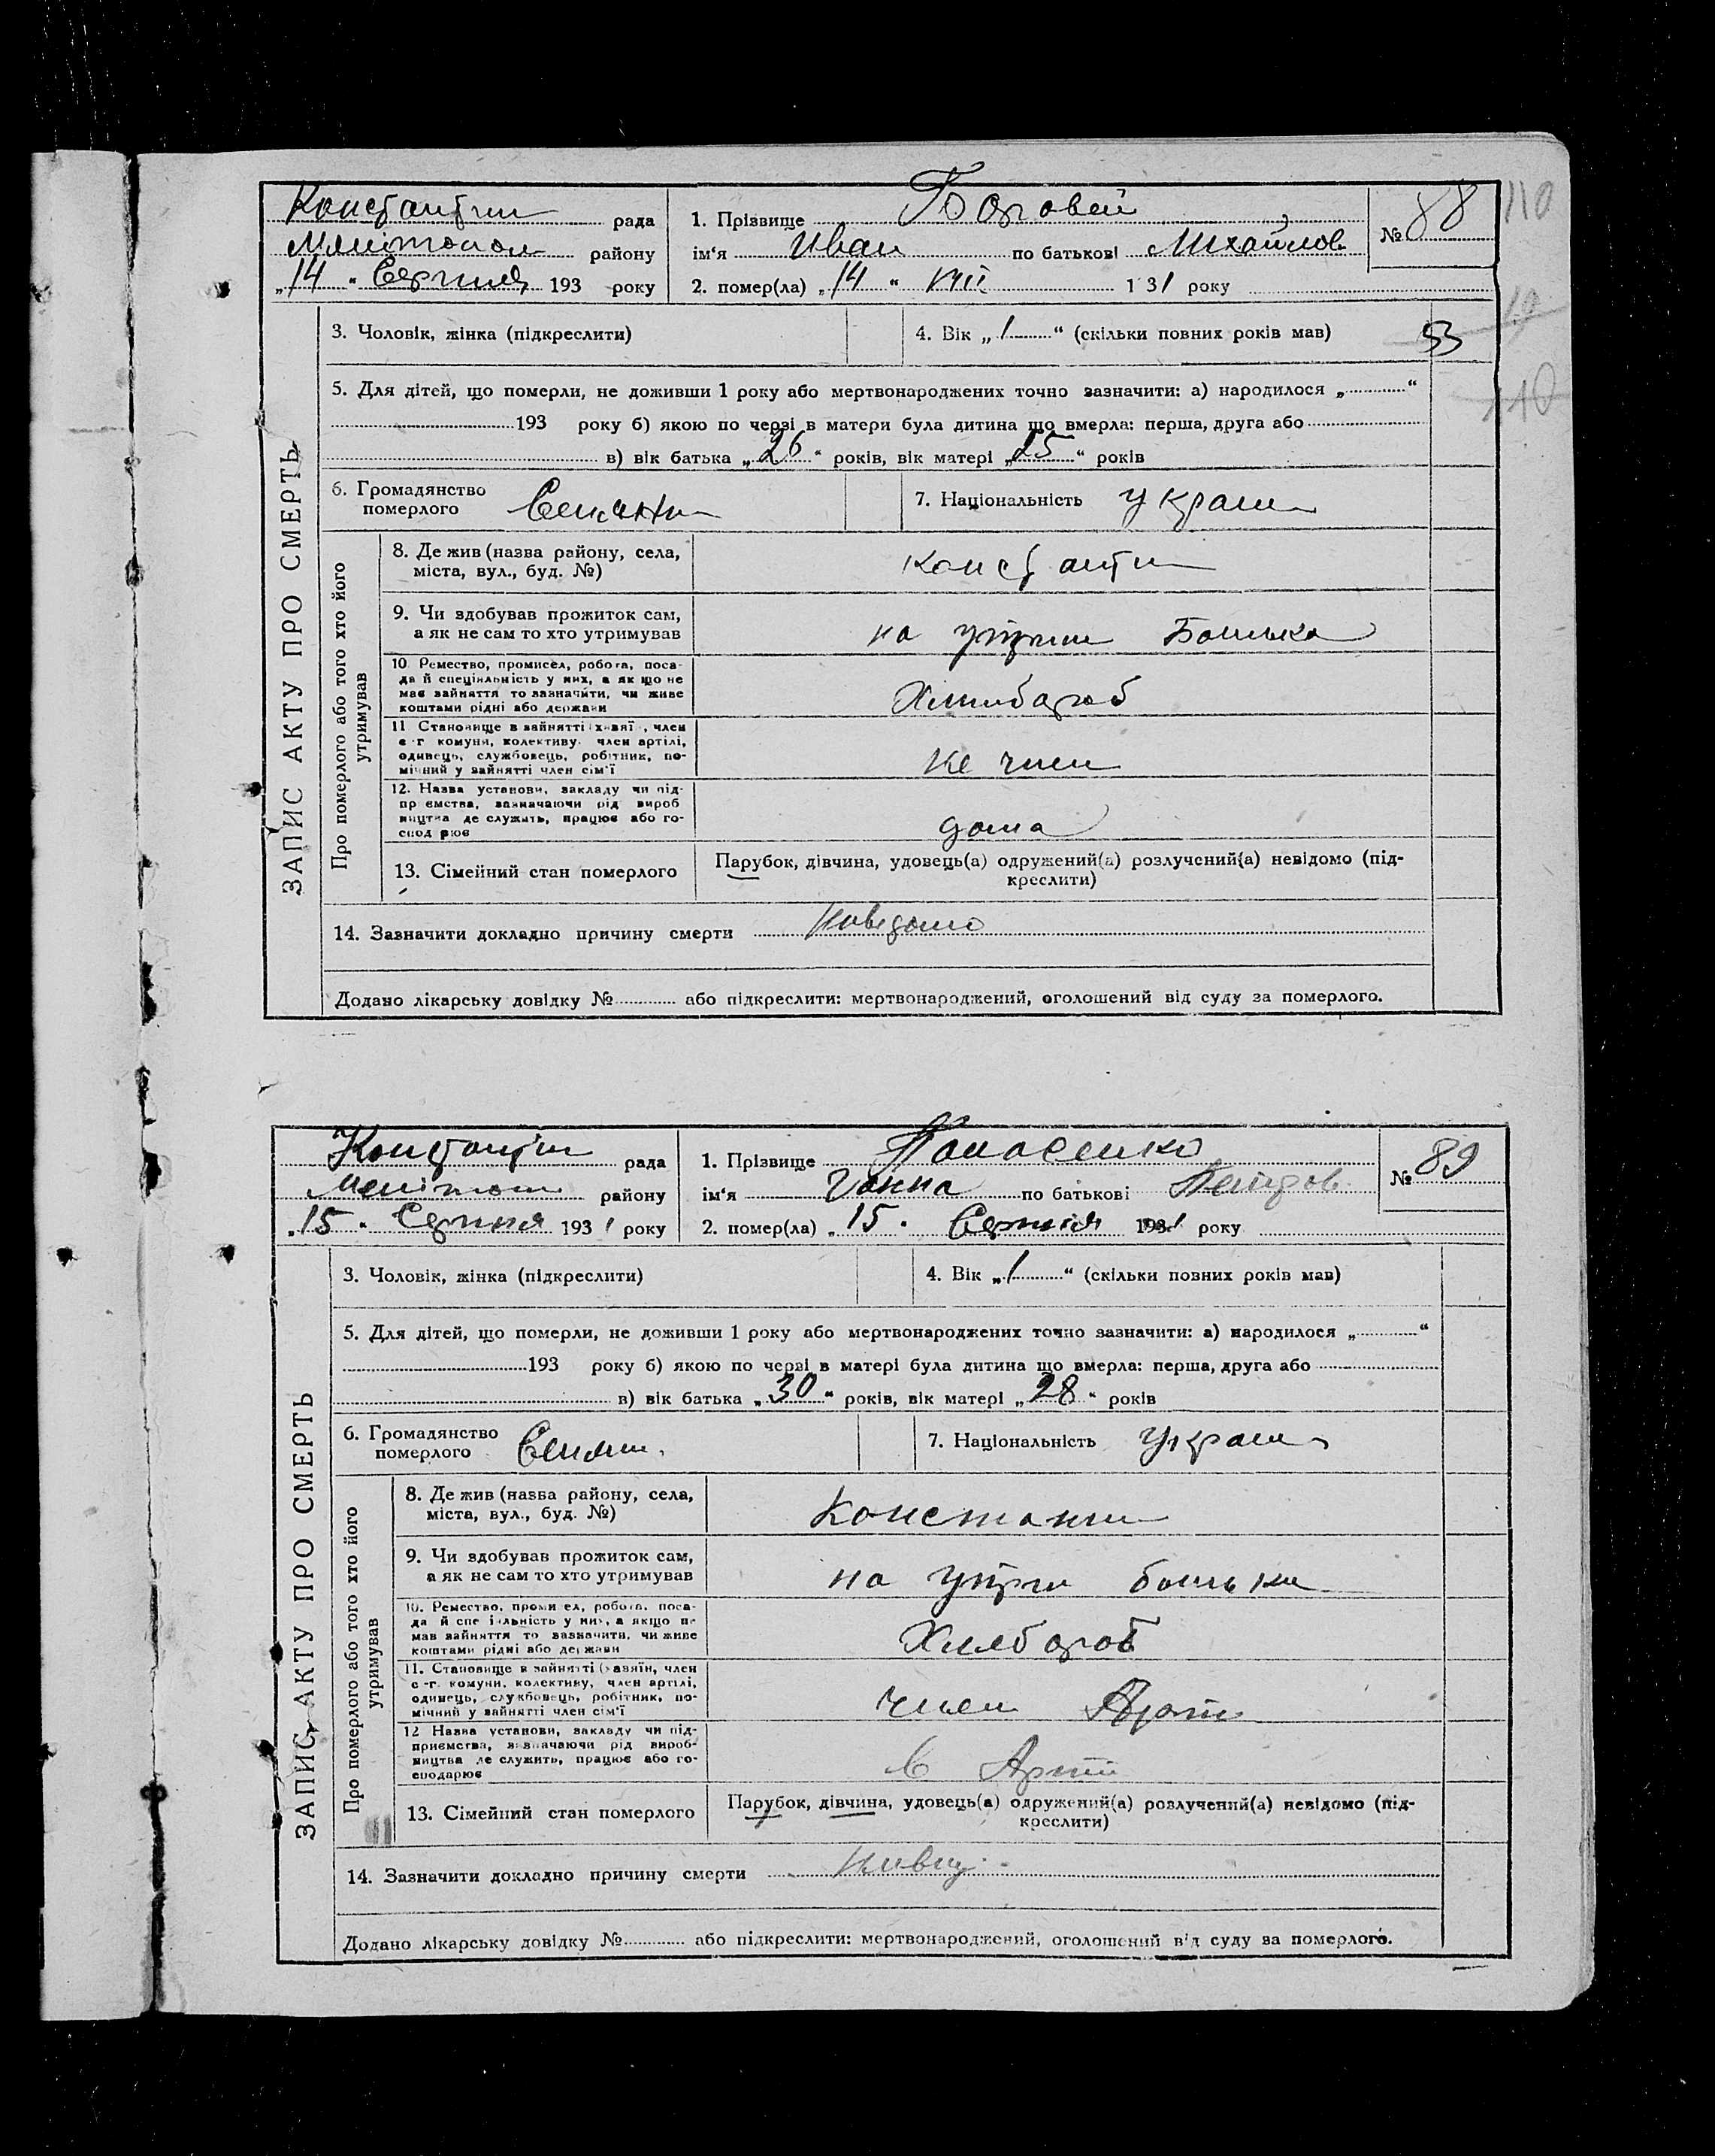 Константин рада
Мелітопол району
„14“ Серпня 193 року
1. Прізвище Боровей
ім‘я Иван по батькові Михайлов
2. помер(ла) „14“ VIII 1 31 року
№ 88
110
3. Чоловік, жінка (підкреслити)
4. Вік „1“ (скільки повних років мав)
53
5. Для дітей, що померли, не доживши 1 року або мертвонароджених точно зазначити: а) народилося „ “
193 року б) якою по черзі в матери була дитина що вмерла: перша, друга або
110
в) вік батька „26“ років, вік матері „25“ років
ЗАПИС АКТУ ПРО СМЕРТЬ
6. Громадянство
померлого
7. Національність Украин
Про померлого або того хто його
утримував
8. Де жив (назва району, села,
міста, вул., буд. №)
Константин
9. Чи здобував прожиток сам,
а як не сам то хто утримував
на утрим Батька
10. Ремество, промисел, робота, поса-
да й спеціяльність у них, а як що не
має зайняття то зазначити, чи живе
коштами рідні або держави
Хлибороб
11 Становище в зайнятті (хазяї , член
с -г комуни, колективу, член артілі,
одинець, службовець, робітник, по-
мічний у зайнятті член сім‘ї
не член
12. Назва установи, закладу чи під-
пр ємства, зазначаючи рід вироб
ництва де служить, працює або го-
спод рює
дома
13. Сімейний стан померлого
Парубок, дівчина, удовець(а) одружений(а) розлучений(а) невідомо (під-
креслити)
14. Зазначити докладно причину смерти Нивідомо
Додано лікарську довідку № або підкреслити: мертвонароджений, оголошений від суду за померлого.
Константін рада
Мелітоп району
„15“ Серпня 1931 року
1. Прізвище Панасенко
ім‘я Ганна по батькові Петров
2. помер(ла) „15“ Серпня 1931 року
№ 89
3. Чоловік, жінка (підкреслити)
4. Вік „1“ (скільки повних років мав)
5. Для дітей, що померли, не доживши 1 року або мертвонароджених точно зазначити: а) народилося „ “
193 року б) якою по черзі в матері була дитина що вмерла: перша, друга або
в) вік батька „30“ років, вік матері „28“ років
ЗАПИС АКТУ ПРО СМЕРТЬ
6. Громадянство
померлого
7. Національність Украин
Про померлого або того хто його
утримував
8. Де жив (назва району, села,
міста, вул., буд. №)
Константин
9. Чи здобував прожиток сам,
а як не сам то хто утримував
на утрим батька
10. Ремество, проми ел, робота, поса-
да й спе іяльність у них, а якщо не
мав зайняття то зазначити, чи живе
коштами рідні або держави
Хлебороб
11. Становище в зайнятті (хазяїн, член
с -г. комуни, колективу, член артілі,
одинець, службовець, робітник, по-
мічний у зайнятті член сім‘ї
член Арті
12 Назва установи, закладу чи під-
приємства, зазначаючи рід вироб-
ництва де служить, працює або го-
сподарює
в Арті
13. Сімейний стан померлого
Парубок, дівчина, удовець(а) одружений(а) розлучений(а) невідомо (під-
креслити)
14. Зазначити докладно причину смерти
Додано лікарську довідку № або підкреслити: мертвонароджений, оголошений від суду за померлого.